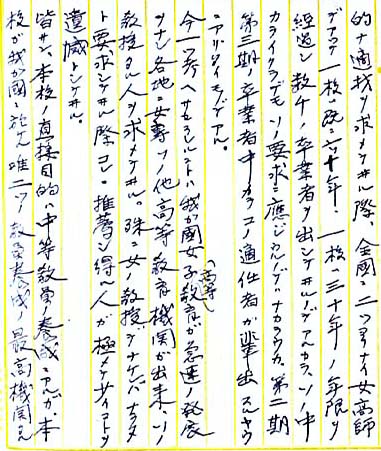 的ナ適材ヲ求メケル際、全國ニ二ツシカナイ女高師
デアッテ一校ハ既ニ六十年、一校ハ三十年ノ年限ヲ
經過シ數千ノ卒業者ヲ出シケルノデアルカラ、ソノ中
カライクラデモソノ要求ニ應ジ
第三期ノ卒業者中カラコノ適任者ガ輩出スルヤウ
アリタイモノデアル。
今一ツ考ヘサセラレルコトハ我ガ國女子(高等)教育ガ急速ノ發展
ヲナシ各地ニ女專ソノ他高等教育機関ガ出来、ソノ
教授タル人ヲ求メケル。殊ニ女ノ教授デナケレバナラヌ
ト要求シケル際コレニ推薦シ得ル人ガ極メテ少イコトヲ
遺憾トシケル。
皆サン、本校ノ直接目的ハ中等教員ノ養成ニアルガ、本
校ガ我ガ國ニ於ケル唯二ツノ教員養成ノ最高機関タル